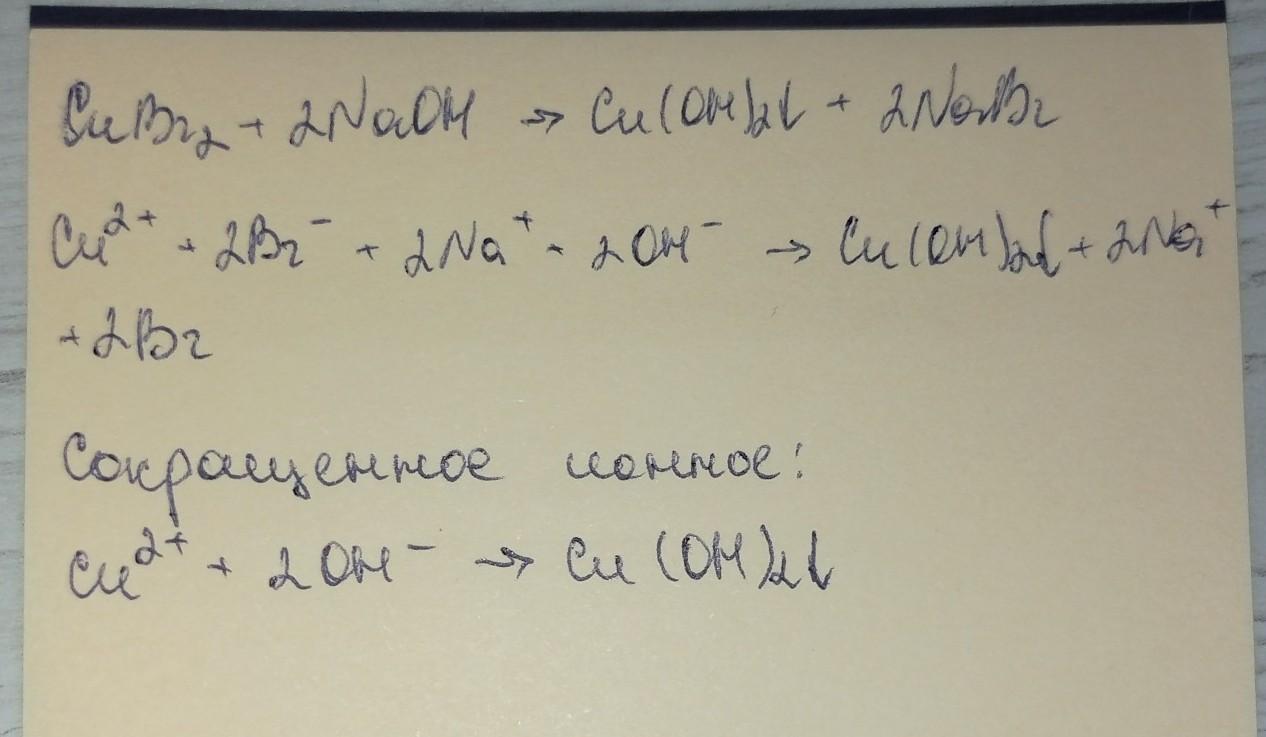 CuBr₂ + 2NaOH → Cu(OH)₂↓ + 2NaBr
Cu²⁺ + 2Br⁻ + 2Na⁺ + 2OH⁻ → Cu(OH)₂↓ + 2Na⁺
+ 2Br
Сокращенное ионное:
Cu²⁺ + 2OH⁻ → Cu(OH)₂↓